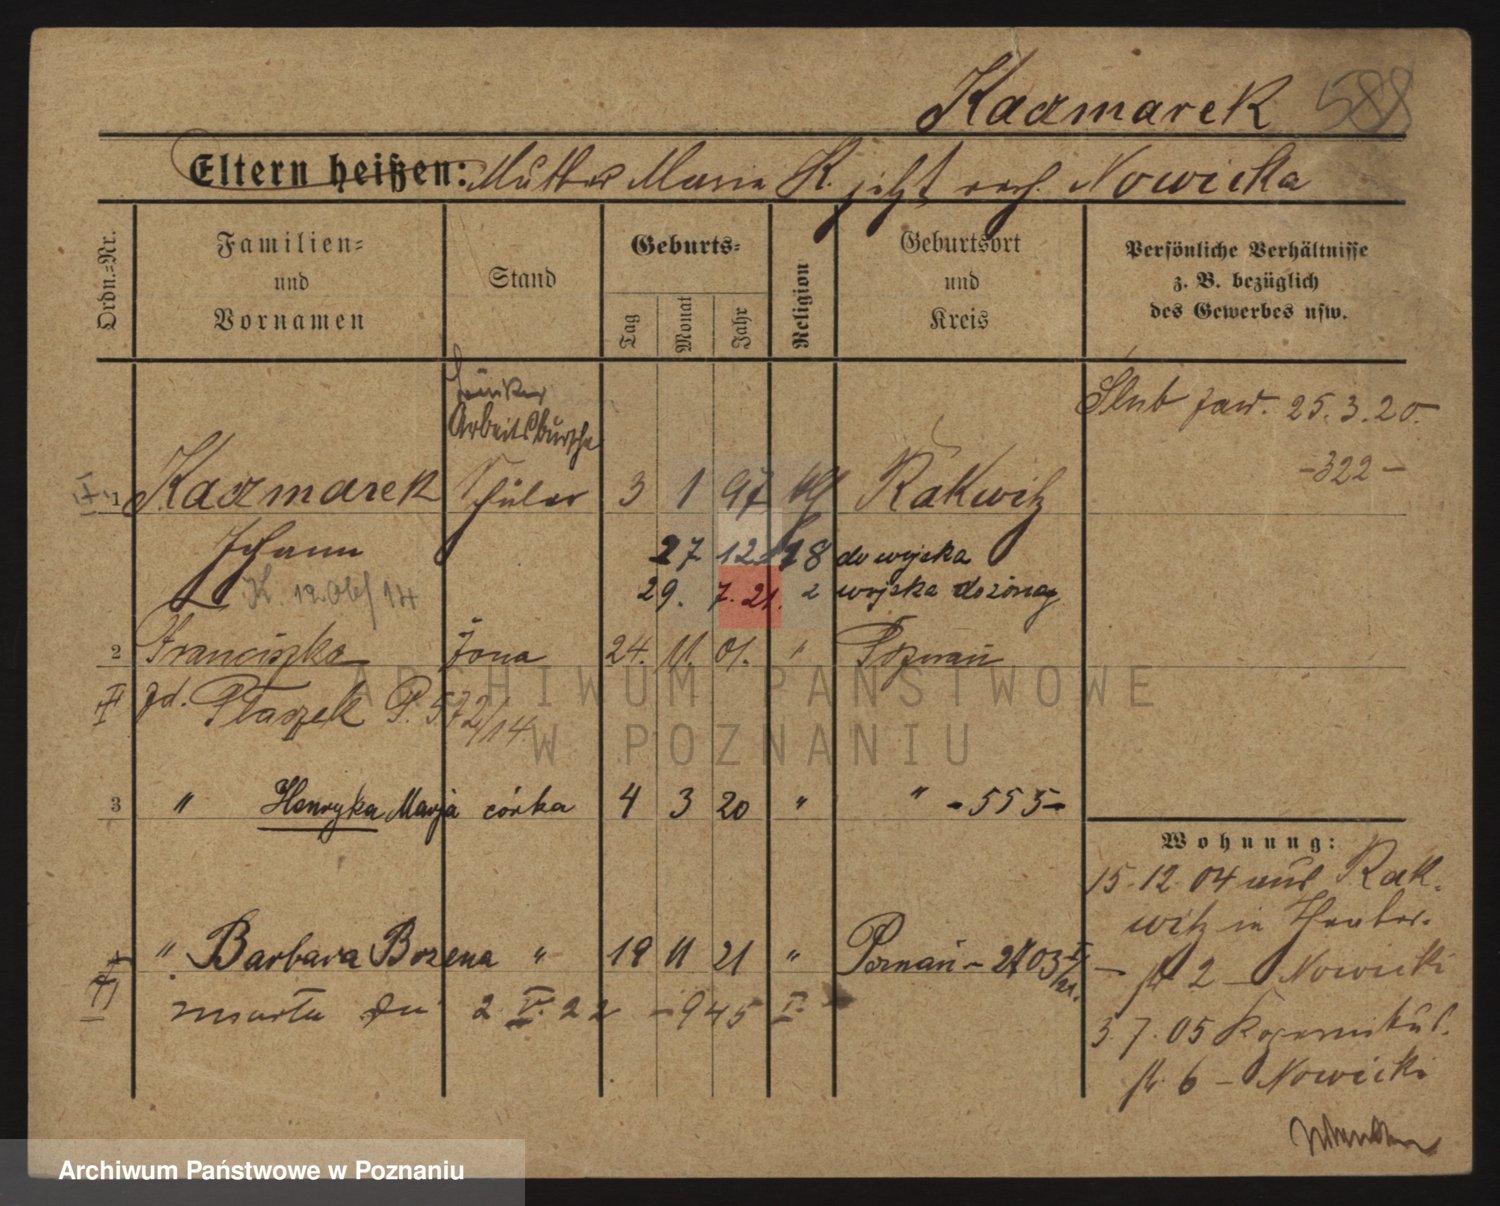 Kaczmarek 588
Eltern heißen: Mutter Maria K. jetzt verh. Nowicka
Ordn.=Nr.
Familien=
und
Vornamen
Stand
Geburts=
Tag
Monat
Jahr
Religion
Geburtsort
und
Kreis
Persönliche Verhältnisse
z. B. bezüglich
des Gewerbes usw.
Ślub zaw. 25.3.20.
-322-
Arbeitsbursche
1 Kaczmarek Schüler 3 1 97 kth Rakwitz
Johann
27 12. 18 do wojska
29. 7. 21. z wojska do żony
K. 12. Obs/14
2 Franciszka żona 24. 11. 01. " Poznań
zd. Ptaszek P. 572/14
3 " Henryka Marja córka 4 3 20 " " -555-
" Barbara Bozena " 19 11 21 " Poznań - 2703
zmarła dn 2 V. 22 - 945 V.
Wohnung:
15.12.04 aus Rak-
witz in
2 - Nowicki
3.7.05
6 - Nowicki
ARCHIWUM PAŃSTWOWE
W POZNANIU
Archiwum Państwowe w Poznaniu